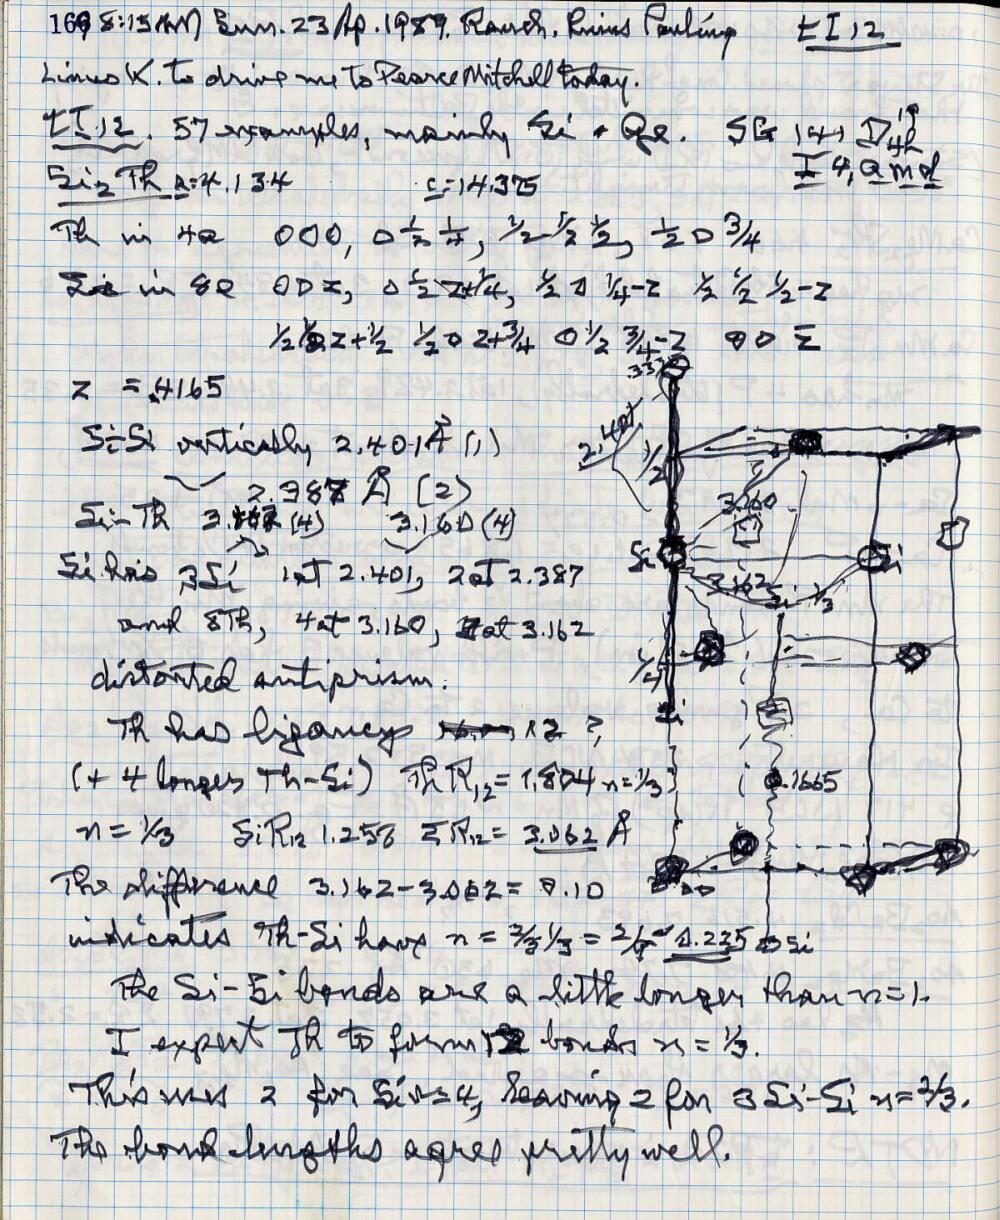 169 8:15 AM Sun. 23 Ap. 1989. Ranch. Linus Pauling tI12
Linus K. to drive me to Pearce Mitchell today.
tI12. 57 examples, mainly Si + Ge. SG 141 D4h19
I 41 amd
Si2Th a=4.134 c=14.375
Th in 4a 000, 0 ½ ¼, ½ ½ ½, ½ 0 ¾
Si in 8e 00z, 0 ½ z+¼, ½ 0 ¼-z ½ ½ ½-z
½ ½ z+½ ½ 0 z+¾ 0 ½ ¾-z 00 z̄
z = .4165
Si-Si vertically 2.401 Å (1)
2.387 Å (2)
Si-Th 3.162 (4) 3.160 (4)
Si has 3Si 1 at 2.401, 2 at 2.387
and 8Th, 4 at 3.160, 4 at 3.162
distorted antiprism.
Th has ligancy 12?,
(+ 4 longer Th-Si) Th R12 = 1.804 n=⅓
n = ⅓ Si R12 1.258 ΣR12 = 3.062 Å
The difference 3.162-3.062 = 0.10
indicates Th-Si have n = ⅔ ⅓ = 2/9 0.235
The Si-Si bonds are a little longer than n=1.
I expect Th to form 12 bonds n = ⅓.
This uses 2 for Si v=4, leaving 2 for 3 Si-Si n=⅔.
The bond lengths agree pretty well.
2.401
½
3.160
Si
Si
3.162
Si ⅓
¼
Si
.1665
Si